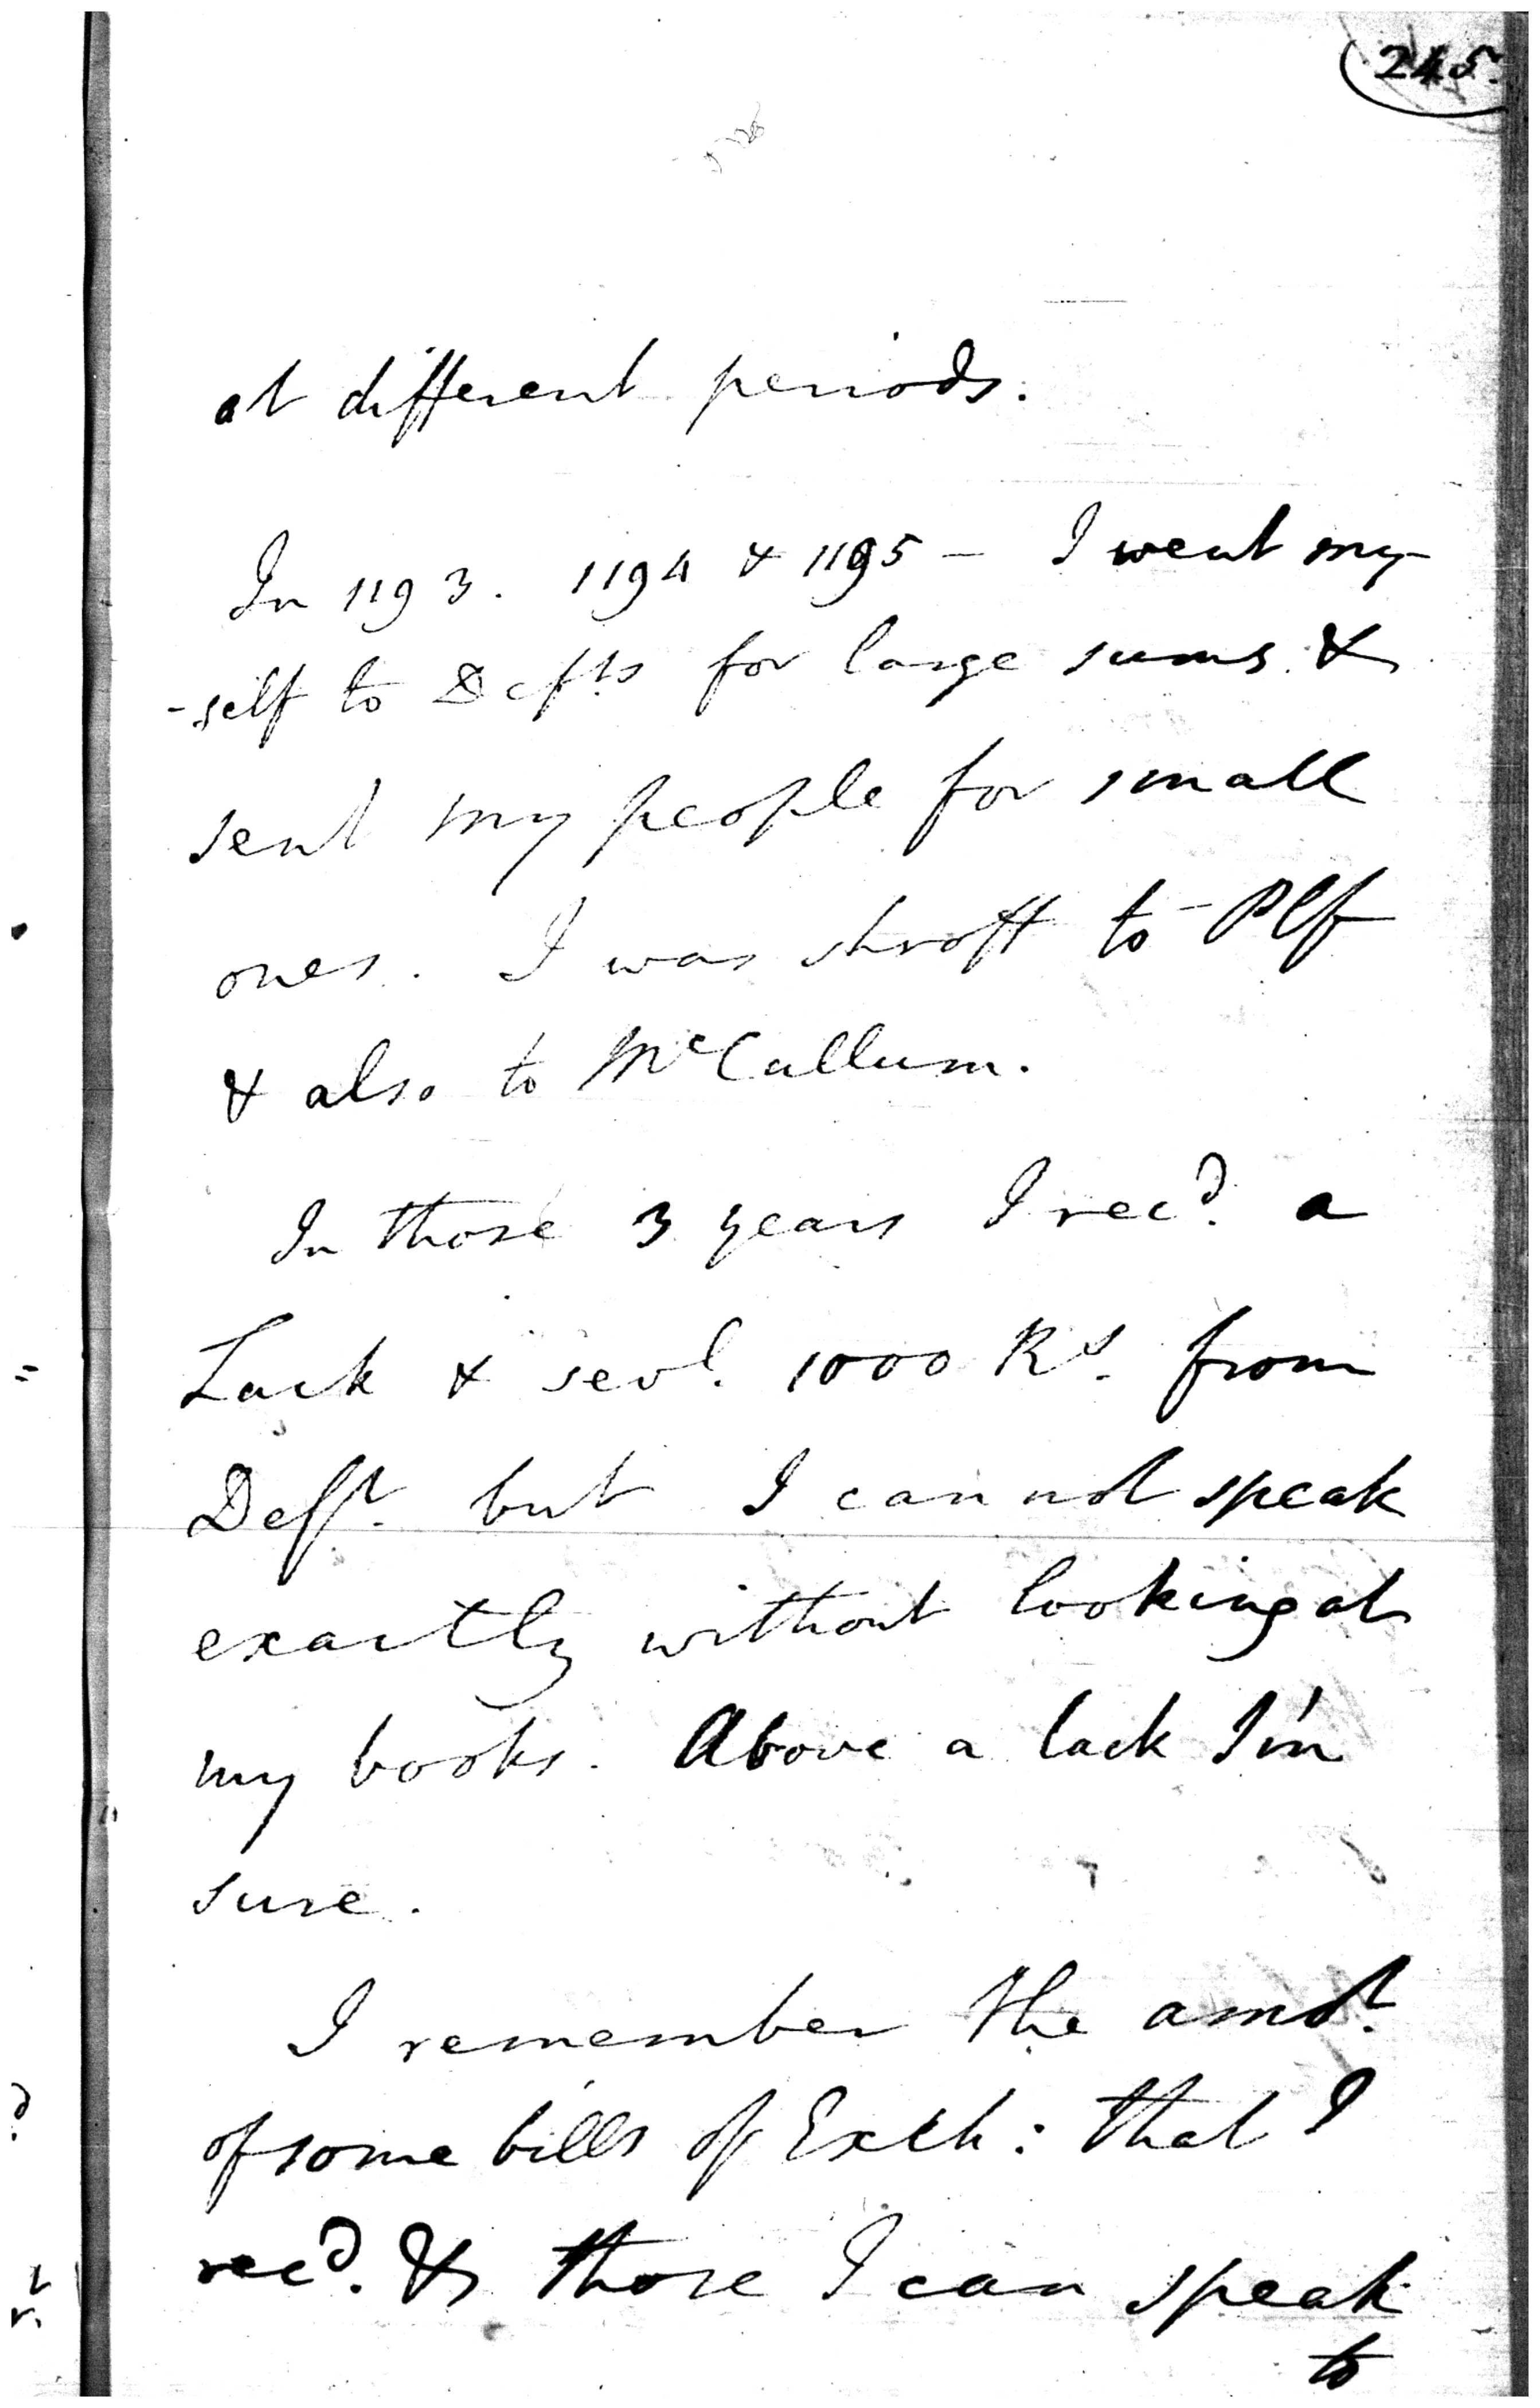 245.
at different periods.
In 1193. 1194 & 1195 - I went my-
-self to Defts for large sums &
sent my people for small
ones. I was shroff to Plf
& also to McCullum.
In those 3 years I recd. a
Lack & sevl. 1000 Rs. from
Deft. but I cannot speak
exactly without looking at
my books. Above a lack I'm
sure.
I remember the amot.
of some bills of Exch: that I
recd. & those I can speak
to